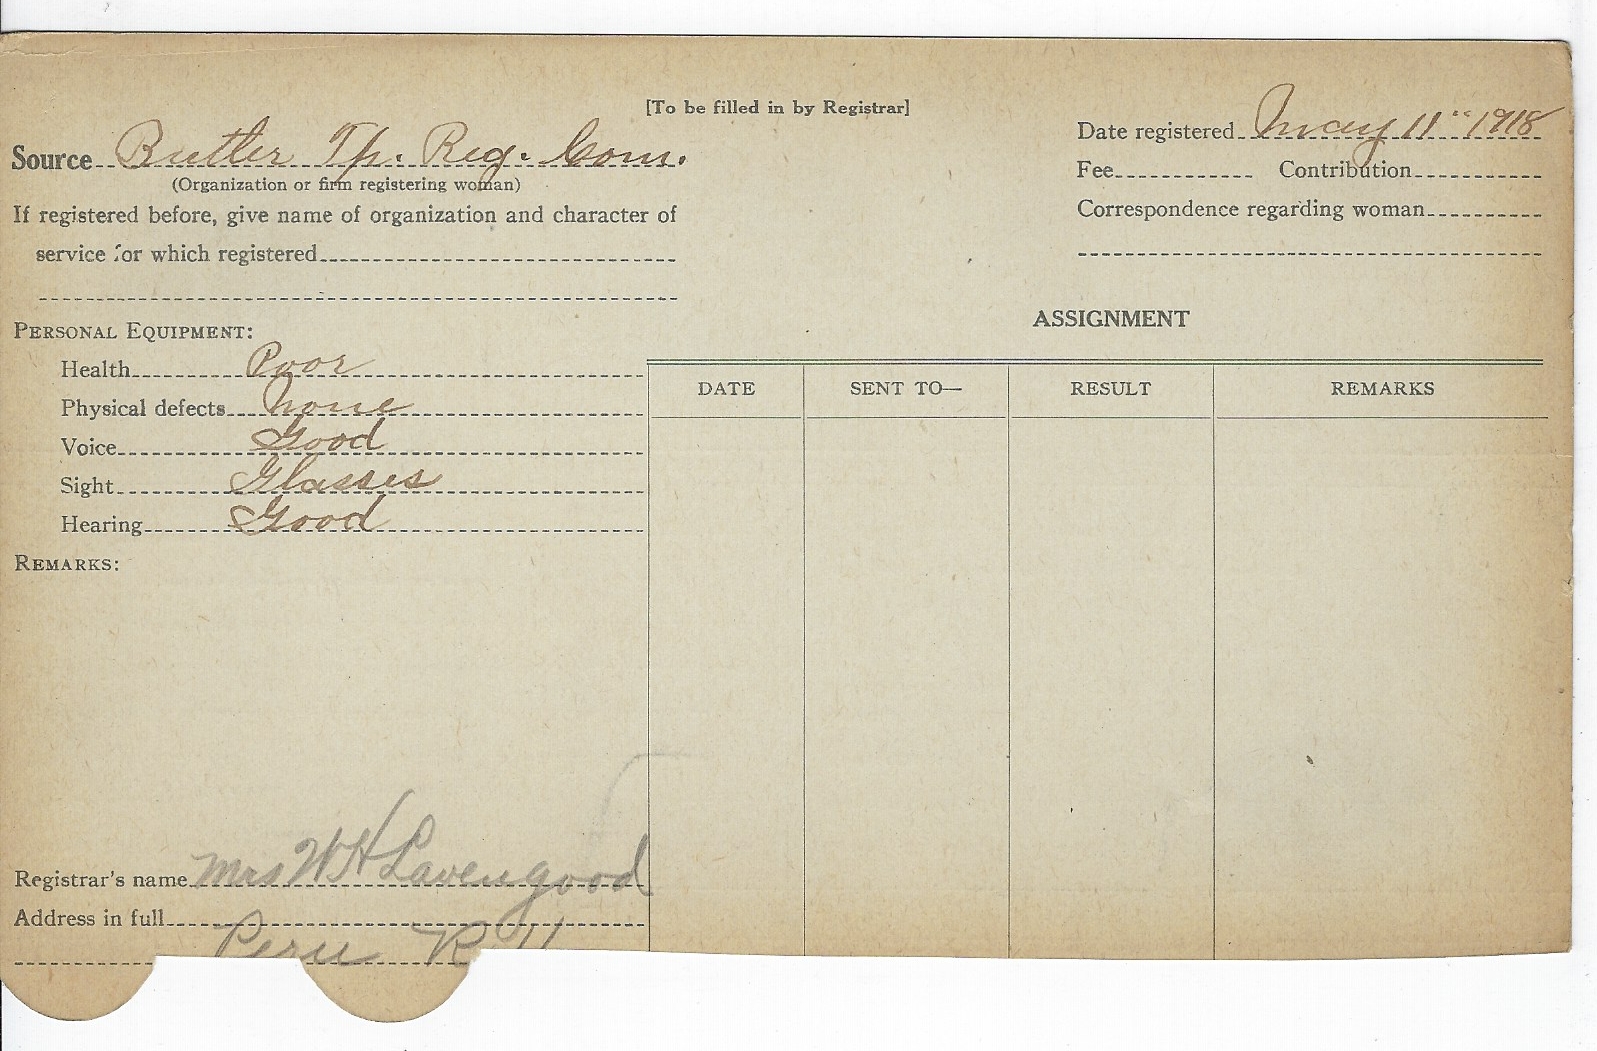 [To be filled in by Registrar]
Source Butler Tp. Reg. Com.
(Organization or firm registering woman)
If registered before, give name of organization and character of
service for which registered
Date registered May 11" 1918
Fee Contribution
Correspondence regarding woman
PERSONAL EQUIPMENT:
Health Poor
Physical defects None
Voice Good
Sight Glasses
Hearing Good
REMARKS:
ASSIGNMENT
DATE SENT TO— RESULT REMARKS
Registrar's name Mrs W H Lavengood
Address in full
Peru R